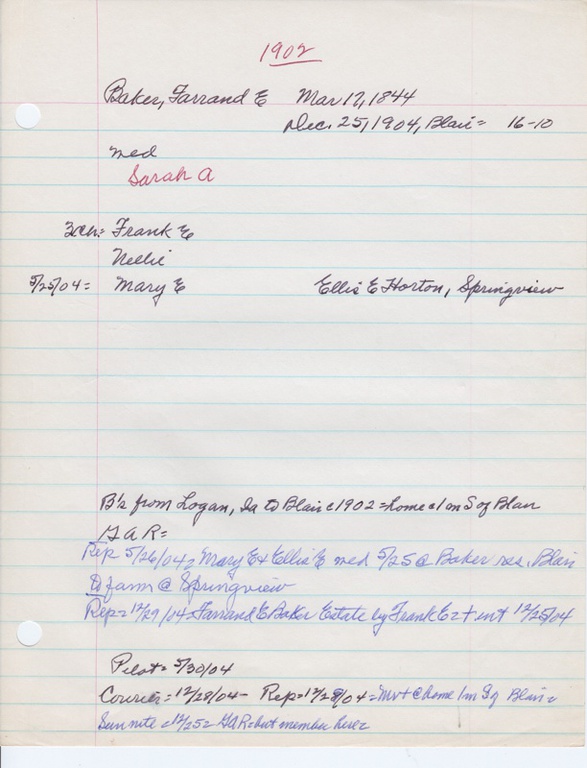 1902
Baker, Farrand E Mar 17, 1844
Dec. 25, 1904, Blair= 16-10
med
Sarah A
3ch: Frank E
Nellie
5/25/04= Mary E Ellis E Horton, Springview
B's from Logan, Ia to Blair c1902=home c1m S of Blair
GAR=
Rep 5/26/04= Mary E + Ellis E med 5/25 @ Baker res. Blair
to farm @ Springview
Rep=12/29/04=Farrand E Baker Estate by Frank E = + int 12/25/04
Pilot= 5/30/04
Courier=12/28/04- Rep=12/28/04= @ home 1m S of Blair=
Sun nite =12/25= GAR=but member here=